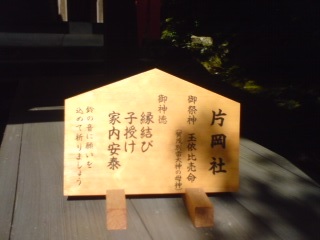 片岡社
御祭神 玉依比売命
(賀茂別雷大神の母神)
御神徳
縁結び
子授け
家内安泰
鈴の音に願いを
込めて祈りましょう